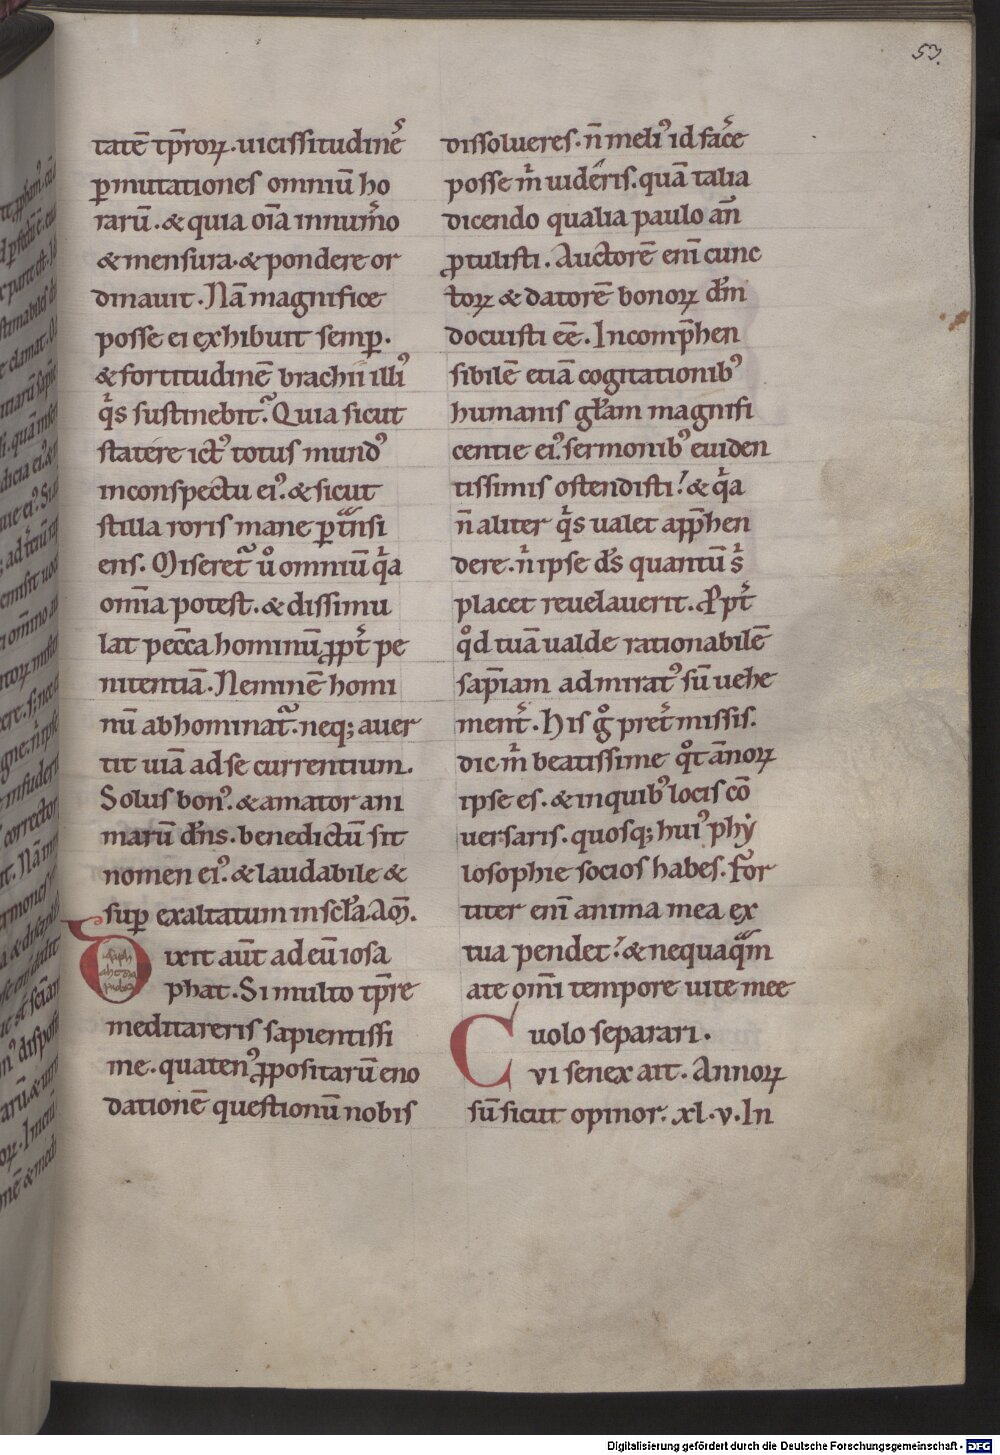 53.
tatē tp̄roꝝ. uicissitudinē
ꝑmutationes omniū ho
rarū. & quia oīa innum̄o
& mensura. & pondere or
dinauit. Nā magnifice
posse ei exhibuit semꝑ.
& fortitudinē brachii illiꝰ
q̇s sustinebit. Quia sicut
statere ictꝰ totus mundꝰ
inconspectu eiꝰ. & sicut
stilla roris mane ꝑtn̄si
ens. Miseret᷑ u̇ omniū q̇a
omīa potest. & dissimu
lat pecc̄a hominū ꝓpt̄ pe
nitentiā. Neminē homi
nū abhominat᷑. neq; auer
tit uiā adse currentium.
Solus bonꝰ. & amator ani
marū dn̄s. benedictū sit
nomen eiꝰ. & laudabile &
suꝑ exaltatum inscl̄a. Am̄.
Dixit aūt ad eū iosa
phat. Si multo tp̄re
meditareris sapientissi
me. quatenꝰ ꝓpositarū eno
dationē questionū nobis
dissolueres. n̄ meliꝰ id fac̄e
posse ṁ uider̄is. quā talia
dicendo qualia paulo an̄
ꝓtulisti. Auctorē enī cunc
toꝝ & datorē bonoꝝ dm̄
docuisti ēē. Incomp̄hen
sibilē etiā cogitationibꝰ
humanis gl̄am magnifi
centie eiꝰ. sermonibꝰ euiden
tissimis ostendisti. & q̇a
n̄ aliter q̇s ualet app̄hen
dere. n̄ ipse ds̄ quantū s̄
placet reuelauerit. Ppt̄
qd̄ tuā ualde rationabilē
sap̄iam admiratꝰ sū uehe
ment̄. His ḡ pret̄missis.
dic ṁ beatissime qt̄ annoꝝ
ipse es. & inquibꝰ locis cō
uersaris. quosq; huiꝰ phy
losophie socios habes. For
titer enī anima mea ex
tua pendet. & nequaqm̄
ate omī tempore uite mee
uolo separari.
Cvi senex ait. Annoꝝ
sū sicut opinor. xl. v. In
Digitalisierung gefördert durch die Deutsche Forschungsgemeinschaft - DFG